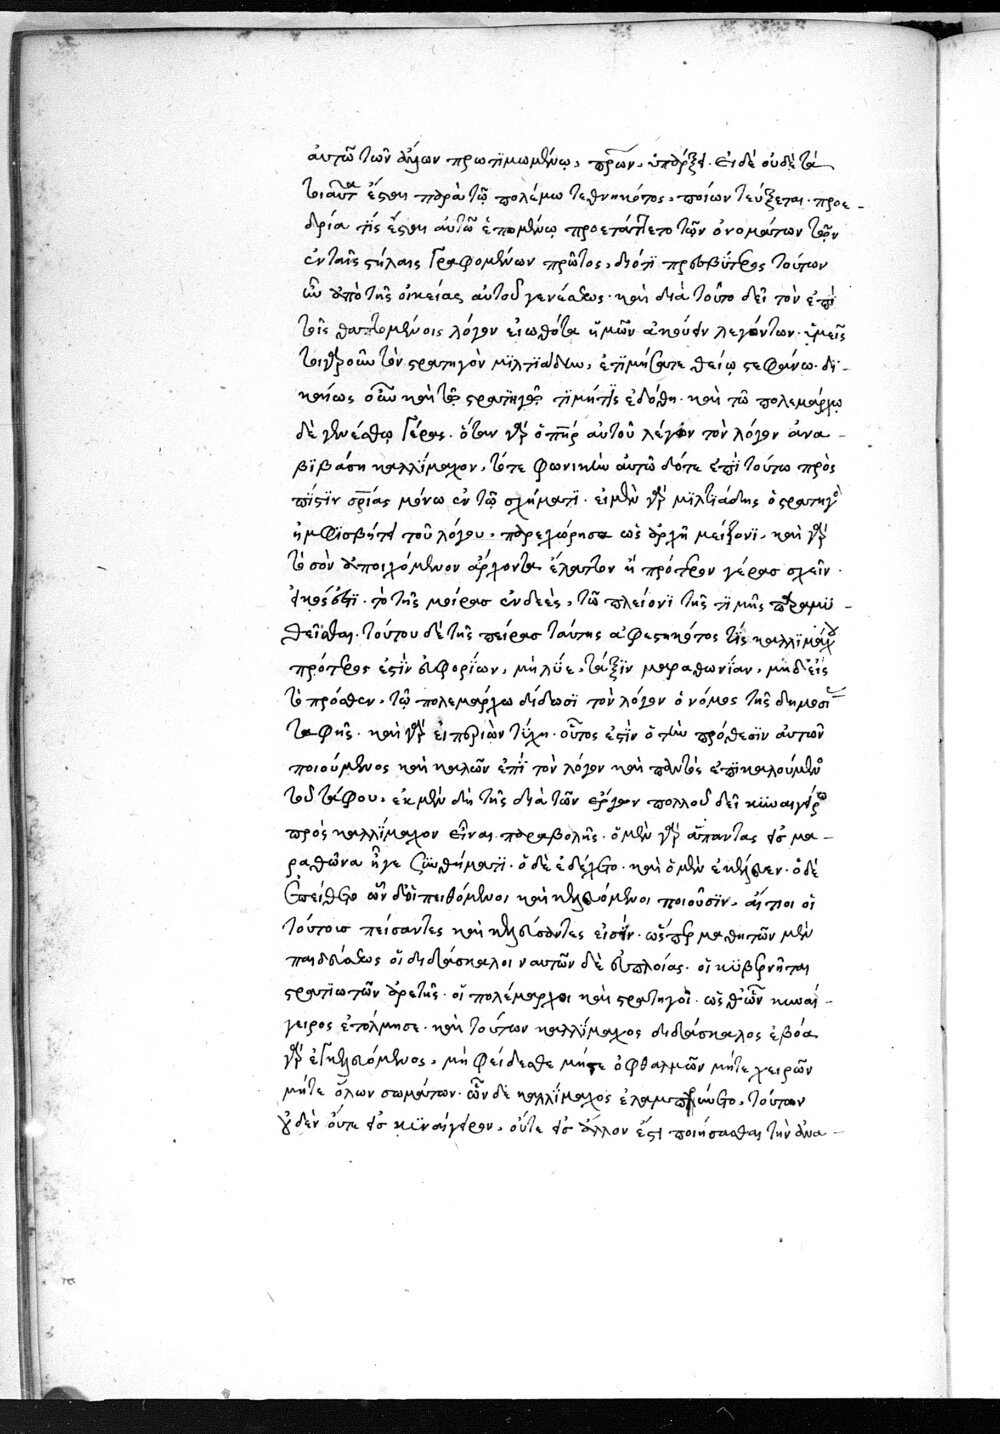 αὐτῶ τῶν ἄλλων προτιμωμένω, πρῶτον, ὑπάρξει. εἰ δὲ οὐδὲ τὰ
τοιαῦτα ἔστι παρὰ τῶ πολέμω τεθνηκότος, ποίων τεύξεται. προε-
δρία τίς ἔστι αὐτῶ ἑπομένω προετάττετο τῶν ὀνομάτων τῶν
ἐν ταῖς στήλαις γραφομένων πρῶτος, διότι πρεσβύτερος τούτων
ὢν ὑπὸ τῆς οἰκείας αὐτοῦ γενεάσεως. καὶ διὰ τοῦτο δεῖ τὸν ἐπὶ
τοῖς θαπτομένοις λόγον εἰωθότα ἡμῶν ἀκούειν λεγόντων. ὑμεῖς
τοιγαροῦν τὸν στρατηγὸν μιλτιάδην, ἐτιμήσατε θείω στεφάνω. δι-
καίως οὖν καὶ τῶ στρατηγῶ τιμή τις ἐδόθη. καὶ τῶ πολεμάρχω
δὲ γενέσθω γέρας. ὅταν γὰρ ὁ πατὴρ αὐτοῦ λέγων τὸν λόγον ἀνα-
βιβάση καλλίμαχον, τότε φωνὴν αὐτῶ δότε ἐπὶ τούτω πρὸς
πίστιν σωτηρίας μόνω ἐν τῶ σχήματι. εἰ μὲν γὰρ μιλτιάδης ὁ στρατηγὸς
ἠμφισβήτει τοῦ λόγου, παρεχώρησα ὡς ἀρχῆ μείζονι. καὶ γὰρ
τὸ σὸν ἀποιχόμενον ἄρχοντα ἔλαττον ἢ πρότερον γέρας σχεῖν.
εἰκός ἐστι. τὸ τῆς μοίρας ἐνδεὲς, τῶ πλείονι τῆς τιμῆς παραμυ-
θεῖσθαι. τούτου δὲ τῆς πείρας ταύτης ἀφεστηκότος τίς καλλιμάχου
πρότερος ἐστὶν εὐφορίων, μὴ λύε, τάξιν μαραθωνίαν, μηδ' εἰς
τὸ πρόσθεν, τῶ πολεμάρχω δίδωσι τὸν λόγον ὁ νόμος τῆς δημοσίας
ταφῆς. καὶ γὰρ εἰ περιὼν τύχη. οὗτος ἐστὶν ὁ τὴν πρόθεσιν αὐτῶν
ποιούμενος καὶ καλῶν ἐπὶ τὸν λόγον καὶ παντὸς ἐπικαλούμενος
τοῦ τάφου, ἐκ μὲν δὴ τῆς διὰ τῶν ἔργων πολλοῦ δεῖ κυναιγείρω
πρὸς καλλίμαχον εἶναι παραβολῆς. ὁ μὲν γὰρ ἅπαντας εἰς μα-
ραθῶνα ἦγε συνθήματι. ὁ δὲ ἐδέχετο. καὶ ὁ μὲν ἐκέλευεν. ὁ δὲ
ἐπείθετο ὧν δ' οἱ πειθόμενοι καὶ κελευόμενοι ποιοῦσιν, αἴτιοι οἱ
τούτοις πείσαντες καὶ κελεύσαντες εἰσίν. ὥσπερ μαθητῶν μὲν
παιδεύσεως οἱ διδάσκαλοι ναυτῶν δὲ εὐπλοίας. οἱ κυβερνῆται
στρατιωτῶν ἀρετῆς. οἱ πολέμαρχοι καὶ στρατηγοί. ὥσθ' ὧν κυναί-
γειρος ἐτόλμησε. καὶ τούτων καλλίμαχος διδάσκαλος ἐβόα
γὰρ ἐγκελευόμενος, μὴ φείδεσθε μήτε ὀφθαλμῶν μήτε χειρῶν
μήτε ὅλων σωμάτων. ὧν δὲ καλλίμαχος ἐλαμπρύνετο, τούτων
οὐδὲν οὔτε εἰς κυναίγειρον, οὔτε εἰς ἄλλον ἔστι ποιήσασθαι τὴν ἀνα-